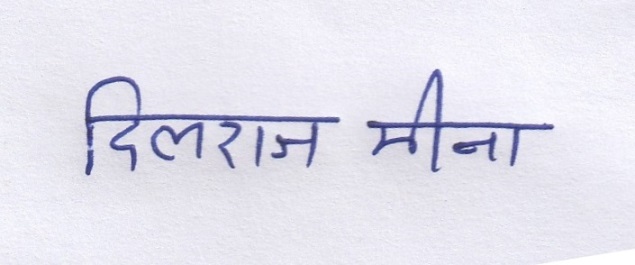 दिलराज मीना